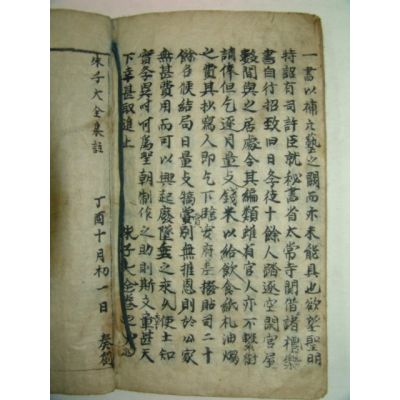 一書以補六藝之闕而亦未能具也欲望聖明
特詔有司許臣就秘書省太常寺関借諸禮樂
書自行招致旧日学徒十餘人踏逐空閑官屋
數間與之居處令其編類雖有官人亦不繫銜
請俸但乞逐月量支錢米以給飲食紙札油燭
之費其抄寫人即乞下臨安府差撥貼司二十
餘名候結局日量支犒賞別無推恩則於公家
無甚費用而可以興起廢墜垂之永久使士知
實学異时可爲聖朝制作之助則斯文幸甚天
下幸甚取進止 朱子大全卷之
丁酉十月初一日
朱子大全集註